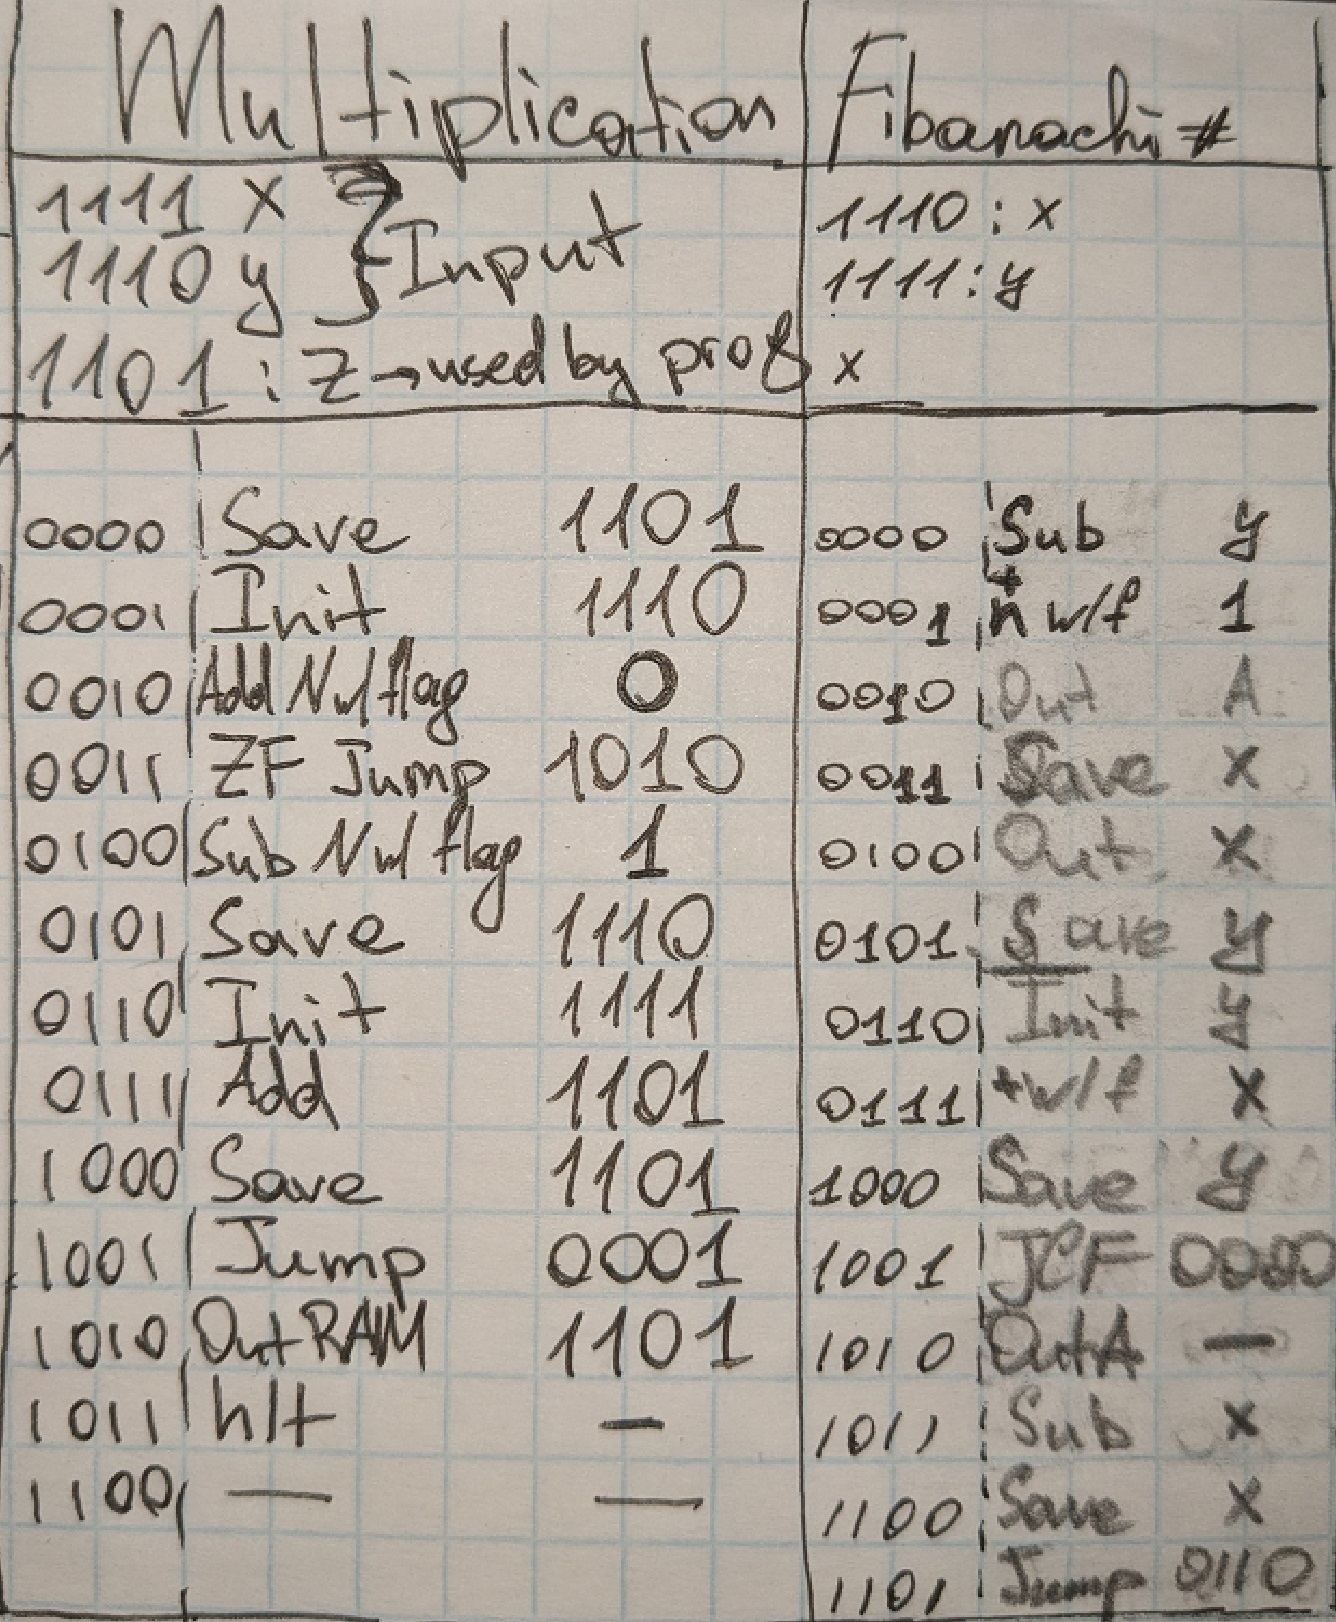 Multiplication
1111 x } Input
1110 y
1101 : Z → used by prog
0000 Save 1101
0001 Init 1110
0010 Add N w/ flag 0
0011 ZF Jump 1010
0100 Sub N w/ flag 1
0101 Save 1110
0110 Init 1111
0111 Add 1101
1000 Save 1101
1001 Jump 0001
1010 Out RAM 1101
1011 hlt —
1100 — —
Fibanachi #
1110 : x
1111 : y
x
0000 Sub y
0001 + n w/f 1
0010 Out A
0011 Save x
0100 Out x
0101 Save y
0110 Init y
0111 + w/f x
1000 Save y
1001 JCF 0000
1010 OutA —
1011 Sub x
1100 Save x
1101 Jump 0110